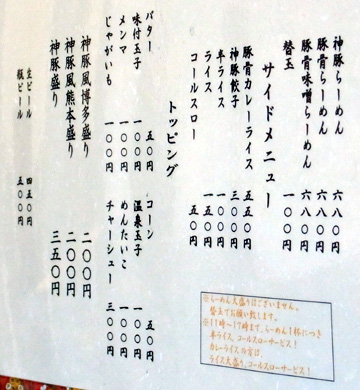 神豚らーめん 六八〇円
豚骨らーめん 六八〇円
豚骨味噌らーめん 六八〇円
替玉 一〇〇円
サイドメニュー
豚骨カレーライス 五五〇円
神豚餃子 三〇〇円
半ライス 一〇〇円
ライス 一五〇円
コールスロー 一五〇円
トッピング
バター 五〇円
味付玉子 一〇〇円
メンマ 一〇〇円
じゃがいも 一〇〇円
コーン 五〇円
温泉玉子 一〇〇円
めんたいこ 一〇〇円
チャーシュー 三〇〇円
神豚風博多盛り 二〇〇円
神豚風熊本盛り 二〇〇円
神豚盛り 三五〇円
生ビール 四五〇円
瓶ビール 五〇〇円
※らーめん大盛りはございません。
替玉でお願い致します。
※11時〜17時まで、らーめん1杯につき
半ライス、コールスローサービス!
カレーライスの方は
ライス大盛り、コールスローサービス!